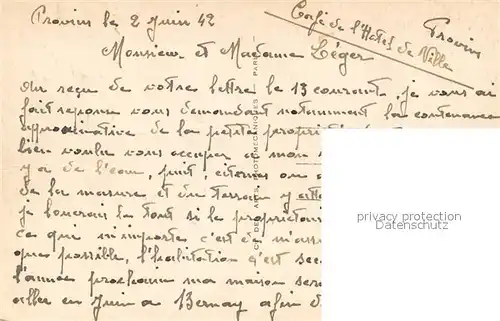 Provins le 2 Juin 42
Café de l'Hotel de Ville
Provins
Monsieur et Madame Léger
Au reçu de votre lettre le 13 courant, je vous ai
fait reponse vous demandant notamment la contenance
approximative de la petite propriété
bien voulu vous occuper a mon
y a de l'eau, puit, citernes ou
de la masure et du terrain y
je louerais le tout si le proprietaire
ce que m'importe c'est de m'assu
que possible, l'habitation c'est sec
l'année prochain ma maison ser
aller en Juin a Bernay afin d
CIE DES ARTS PHOTOMECANIQUES PARIS
privacy protection
Datenschutz